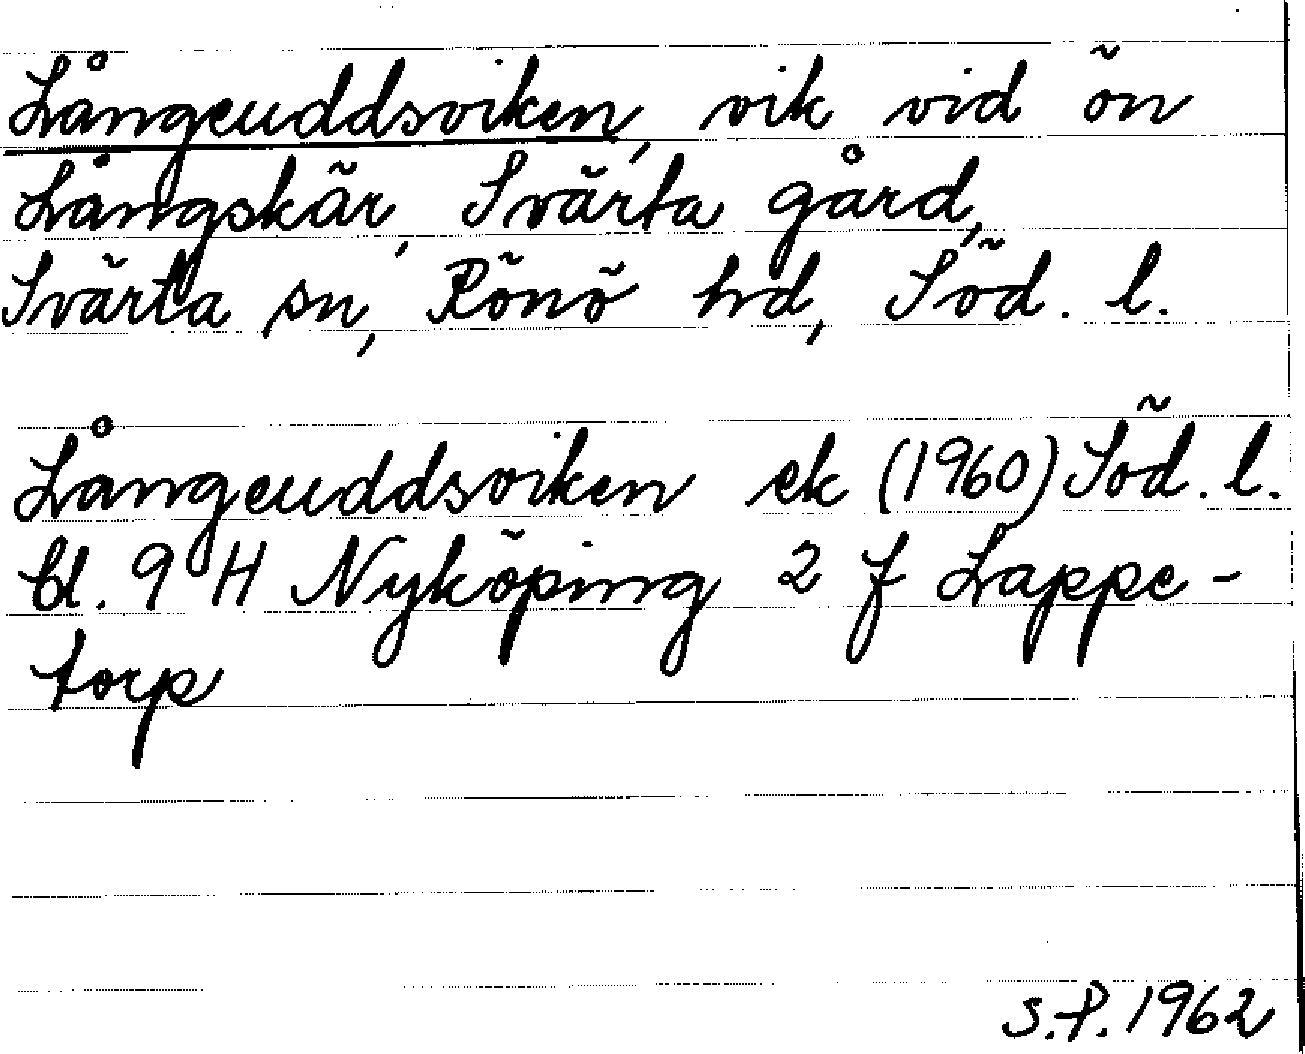 Långeuddsviken, vik vid ön
Långskär, Svärta gård,
Svärta sn, Rönö hd, Söd. l.
Långeuddsviken ek (1960) Söd. l.
bl. 9 H Nyköping 2 f Lappe-
torp
S.P. 1962